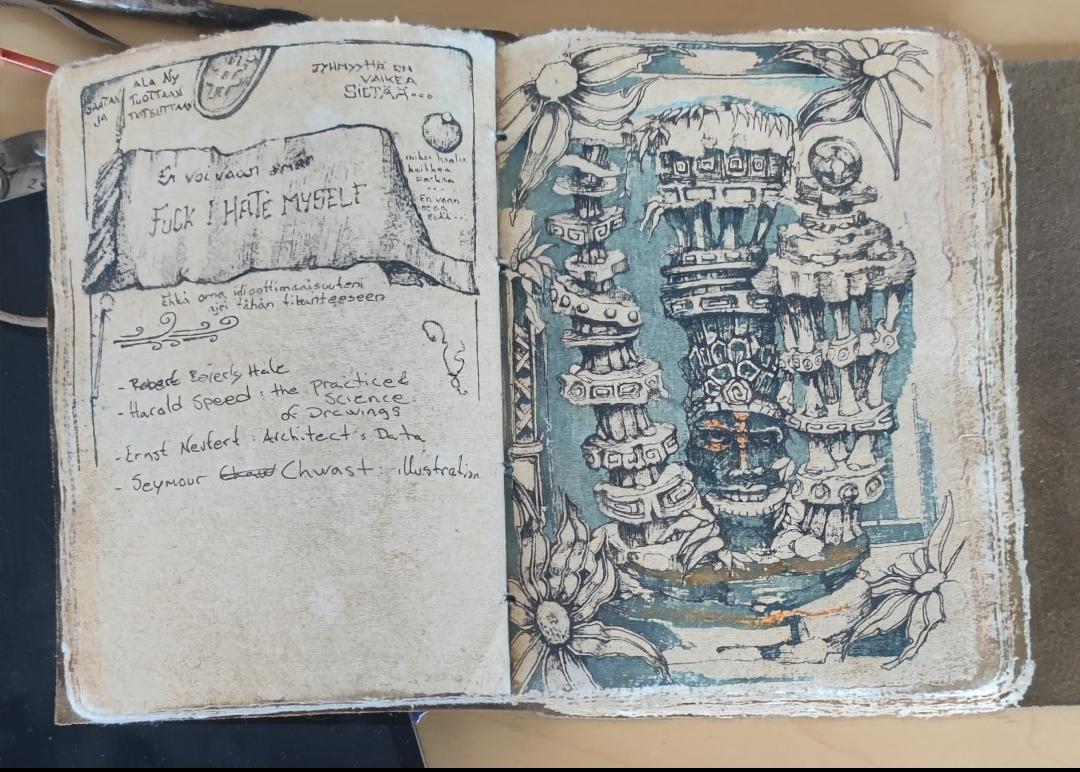 ALA NY
SAATAN TUOTTAAN
JA
TYHMYYTTÄ ON
VAIKEA
SIETÄÄ...
En voi vaan
FUCK I HATE MYSELF
miksi
kaikkea
En vaan
Ehkä oma idioottimaisuuteni
ajoi tähän tilanteeseen
- Robert Beverly Hale
- Harold Speed: the practice &
Science
of Drawings
- Ernst Neufert: Architect's Data
- Seymour Chwast: illustration